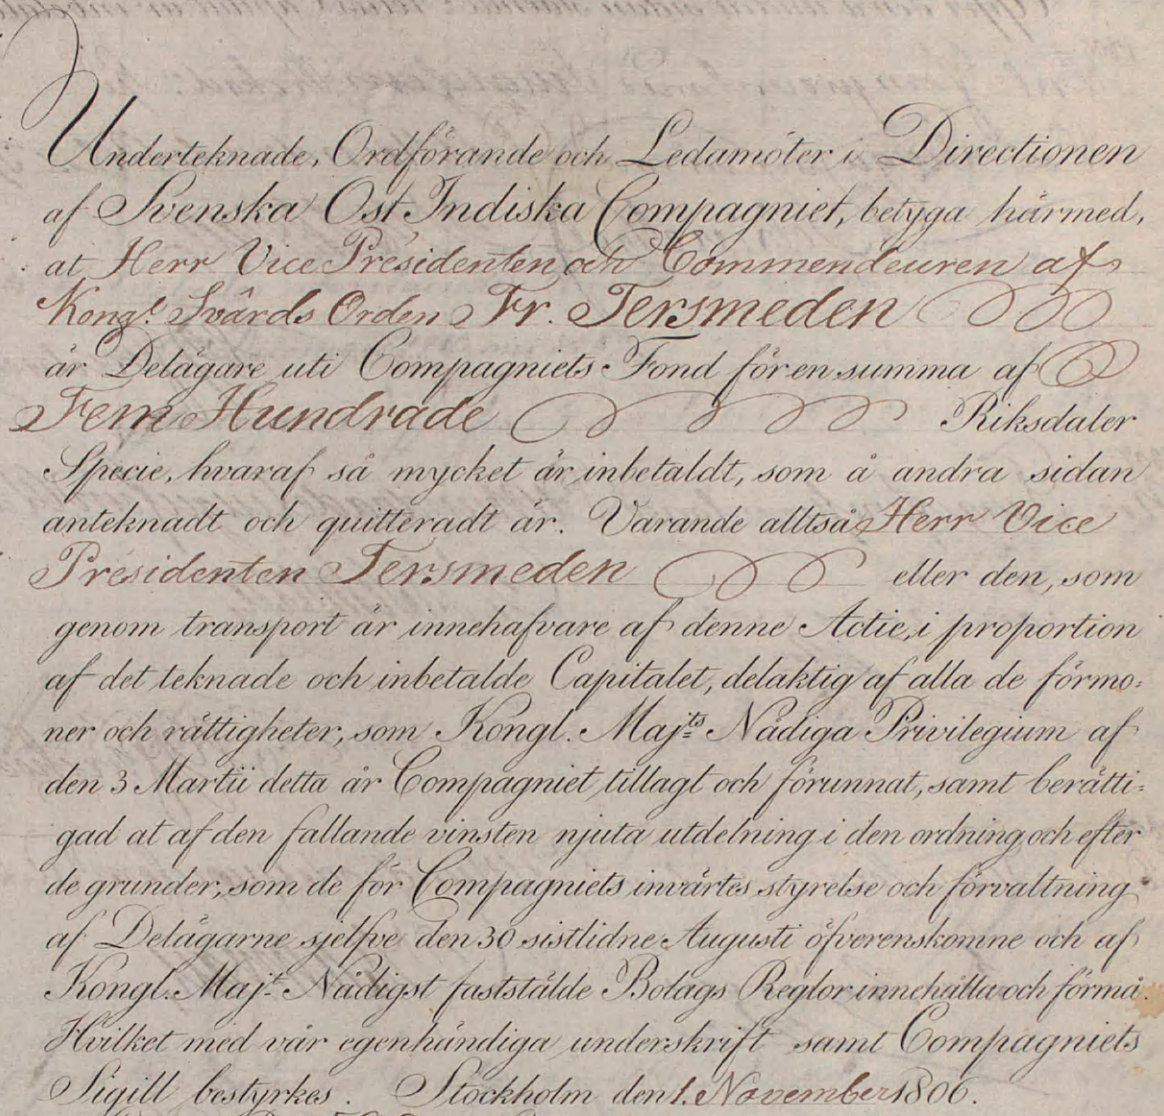 Underteknade, Ordförande och Ledamöter i Directionen
af Svenska Ost Indiska Compagniet, betyga härmed,
at Herr Vice Presidenten och Commendeuren af
Kongl. Svärds Orden Fr. Tersmeden
är Delägare uti Compagniets Fond för en summa af
Fem Hundrade Riksdaler
Specie, hvaraf så mycket är inbetaldt, som å andra sidan
anteknadt och quitteradt är. Varande alltså Herr Vice
Presidenten Tersmeden eller den, som
genom transport är innehafvare af denne Actie, i proportion
af det teknade och inbetalde Capitalet, delaktig af alla de förmo=
ner och rättigheter, som Kongl. Maj:ts Nådiga Privilegium af
den 3 Martii detta år Compagniet tillagt och förunnat, samt berätti=
gad at af den fallande vinsten njuta utdelning i den ordning och efter
de grunder, som de för Compagniets invärtes styrelse och förvaltning
af Delägarne sjelfve den 30 sistlidne Augusti öfverenskomne och af
Kongl. Maj:t Nådigst fastställde Bolags Reglor innehålla och förmå.
Hvilket med vår egenhändiga underskrift samt Compagniets
Sigill bestyrkes. Stockholm den 1. November 1806.